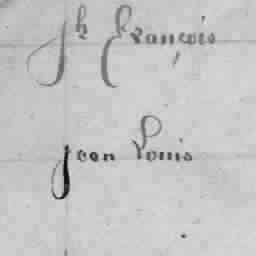 Jh françois
jean Louis